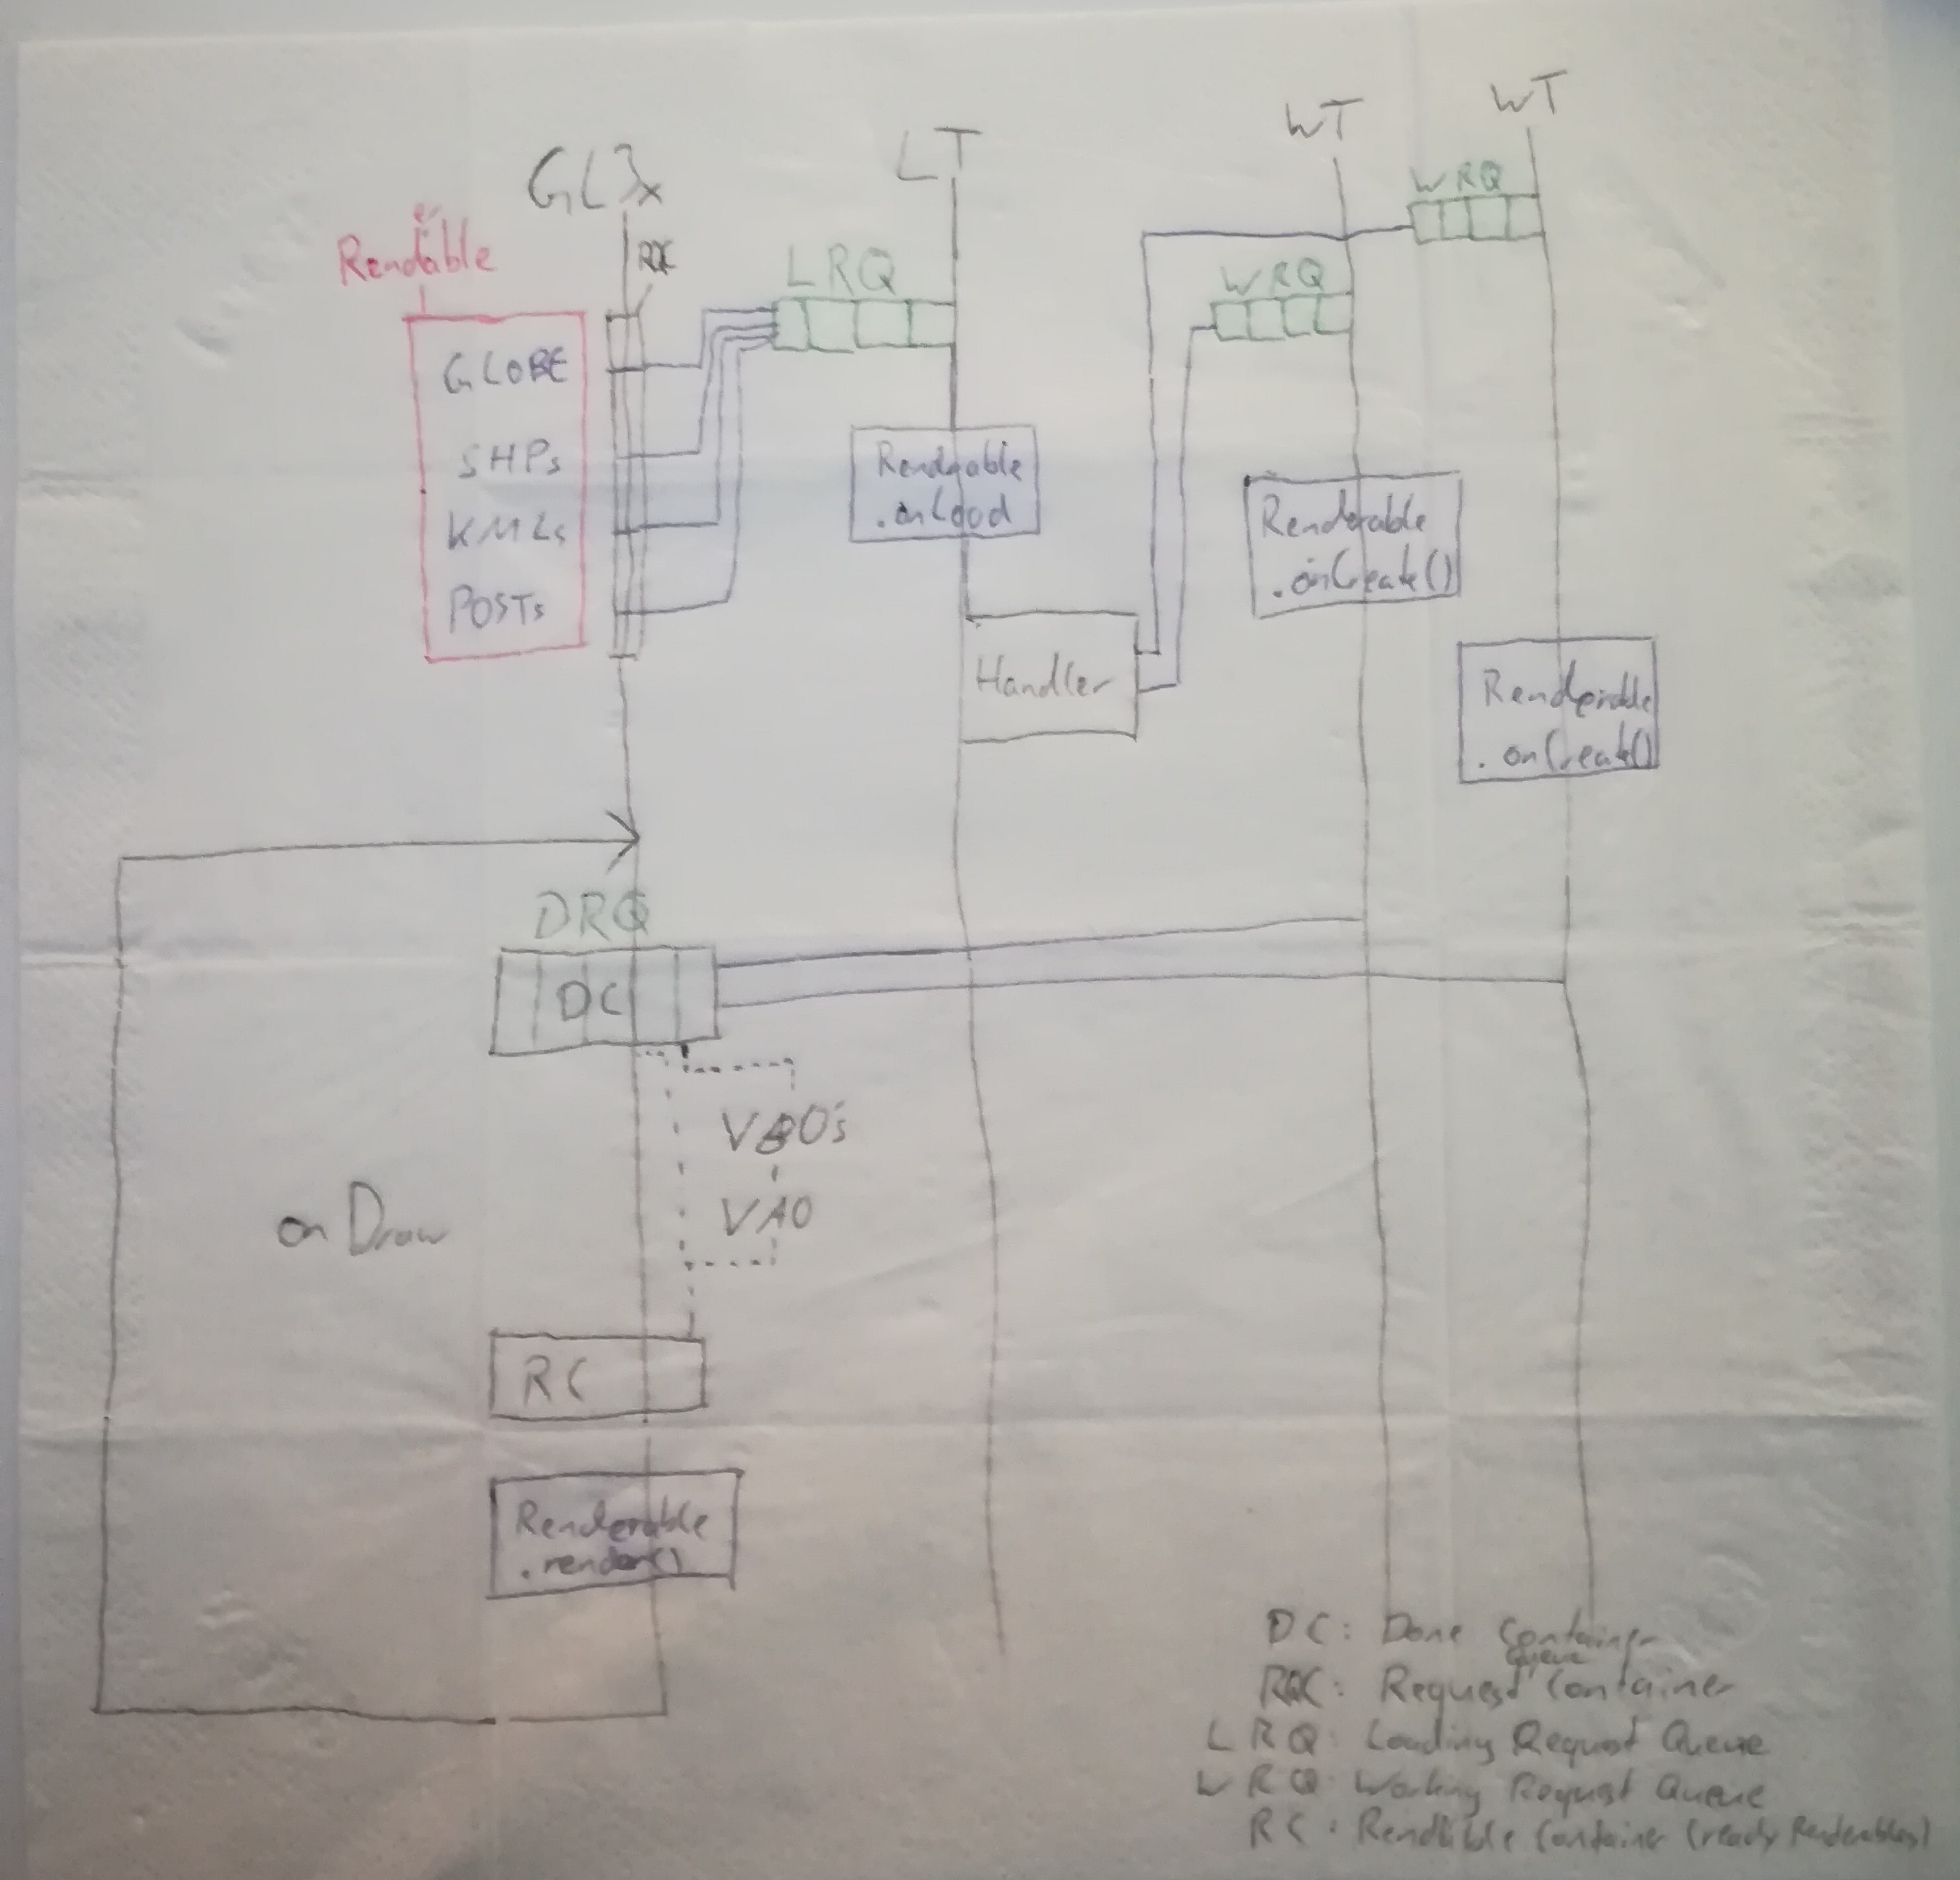 GL3x
LT
WT
WT
er
Rendable
LRQ
WRQ
WRQ
GLOBE
SHPs
KMLs
POSTs
Renderable
.onLoad
Renderable
.onCreate()
Handler
Renderable
.onCreate()
DRQ
DC
VBO's
VAO
onDraw
RC
Renderable
.render()
DC: Done Container
Queue
RQC: Request Container
LRQ: Loading Request Queue
WRQ: Working Request Queue
RC: Container (ready Renderables)